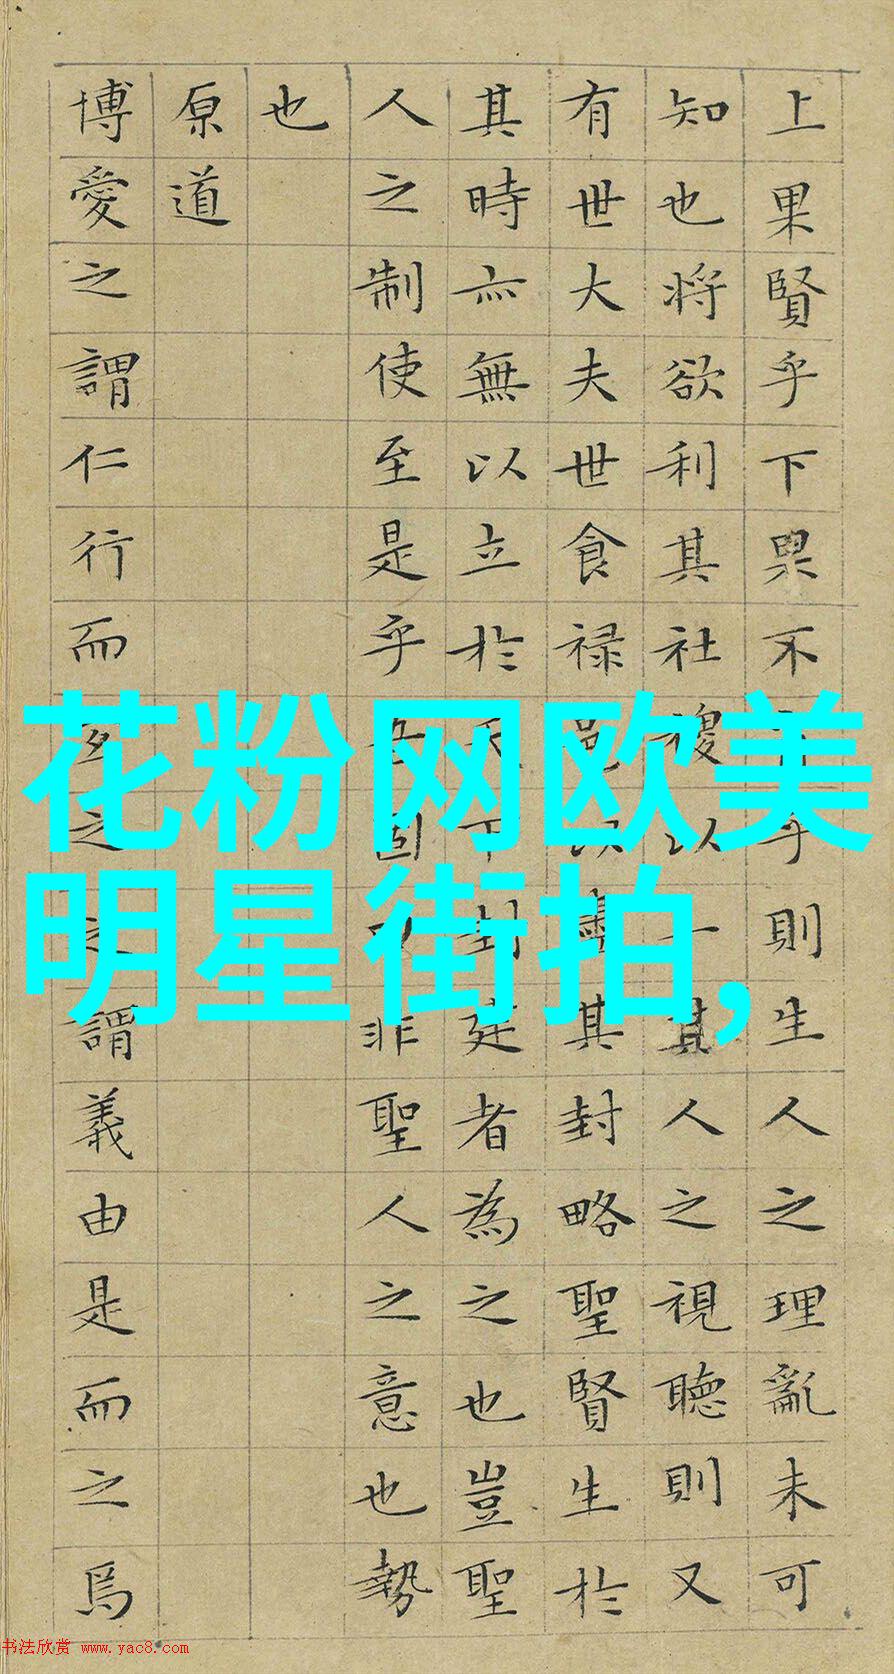 上果賢乎下果不乎則生人之理亂未可
知也將欲利其社稷以一其人之視聽則又
有世大夫世食禄邑以其封略聖賢生於
其時亦無以立於天下封建者為之也豈聖
人之制使至是乎吾固曰非聖人之意也勢
也
原道
博愛之謂仁行而宜之之謂義由是而之焉
花粉网欧美
明星街拍,
书法欣赏 www.yac8.com